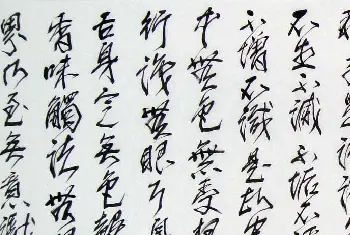 是諸
不生不滅不垢不
不增不減是故空
中無色無受想
行識無眼耳鼻
舌身意無色聲
香味觸法無眼
界乃至無意識